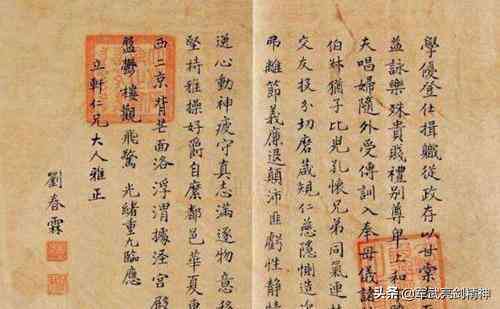 學優登仕攝職從政存以甘棠
益詠樂殊貴賤禮別尊卑上和
夫唱婦隨外受傅訓入奉母儀諸
伯叔猶子比兒孔懷兄弟同氣連
交友投分切磨箴規仁慈隱惻造
弗離節義廉退顛沛匪虧性靜情
逸心動神疲守真志滿逐物意移
堅持雅操好爵自縻都邑華夏東
西二京背芒面洛浮渭據涇宮殿
盤鬱樓觀飛驚 光緒重九臨應
立軒仁兄大人雅正
劉春霖
头条 @军武亮剑精神